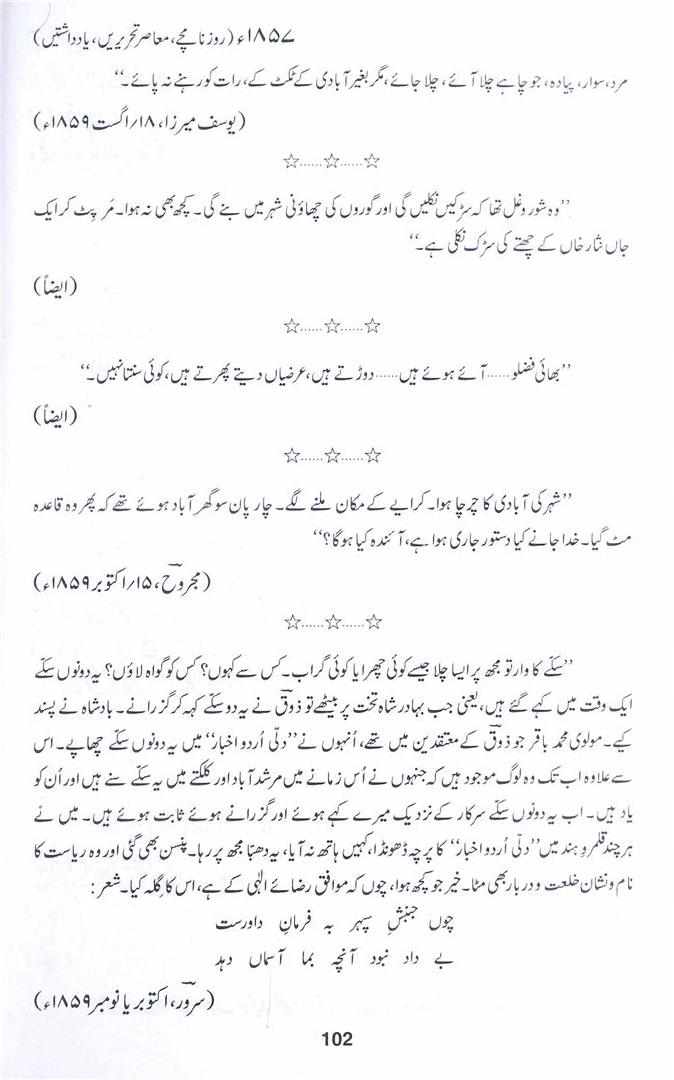 ۱۸۵۷ء (روزنامچے، معاصر تحریریں، یادداشتیں)
مرد، سوار، پیادہ، جو چاہے چلا آئے، چلا جائے، مگر بغیر آبادی کے ٹکٹ کے، رات کو رہنے نہ پائے۔‘‘
(یوسف میرزا، ۱۸/اگست ۱۸۵۹ء)
☆......☆......☆
’’وہ شور و غل تھا کہ سڑکیں نکلیں گی اور گوروں کی چھاؤنی شہر میں بنے گی۔ کچھ بھی نہ ہوا۔ مَر پِٹ کر ایک
جاں نثار خاں کے چھتے کی سڑک نکلی ہے۔‘‘
(ایضاً)
☆......☆......☆
’’بھائی فضلو...... آئے ہوئے ہیں...... دوڑتے ہیں، عرضیاں دیتے پھرتے ہیں، کوئی سنتا نہیں۔‘‘
(ایضاً)
☆......☆......☆
’’شہر کی آبادی کا چرچا ہوا۔ کرایے کے مکان ملنے لگے۔ چار پان سو گھر آباد ہوئے تھے کہ پھر وہ قاعدہ
مٹ گیا۔ خدا جانے کیا دستور جاری ہوا ہے، آئندہ کیا ہوگا؟‘‘
(مجروحؔ، ۱۵/اکتوبر ۱۸۵۹ء)
☆......☆......☆
’’سکّے کا وار تو مجھ پر ایسا چلا جیسے کوئی چھرا یا کوئی گراب۔ کس سے کہوں؟ کس کو گواہ لاؤں؟ یہ دونوں سکّے
ایک وقت میں کہے گئے ہیں، یعنی جب بہادر شاہ تخت پر بیٹھے تو ذوقؔ نے یہ دو سکّے کہہ کر گزرانے۔ بادشاہ نے پسند
کیے۔ مولوی محمد باقر جو ذوقؔ کے معتقدین میں تھے، اُنہوں نے ’’دلّی اُردو اخبار‘‘ میں یہ دونوں سکّے چھاپے۔ اس
سے علاوہ اب تک وہ لوگ موجود ہیں کہ جنہوں نے اُس زمانے میں مرشد آباد اور کلکتے میں یہ سکّے سنے ہیں اور اُن کو
یاد ہیں۔ اب یہ دونوں سکّے سرکار کے نزدیک میرے کہے ہوئے اور گزرانے ہوئے ثابت ہوئے ہیں۔ میں نے
ہر چند قلمروِ ہند میں ’’دلّی اُردو اخبار‘‘ کا پرچہ ڈھونڈا، کہیں ہاتھ نہ آیا، یہ دھبّا مجھ پر رہا۔ پنسن بھی گئی اور وہ ریاست کا
نام و نشان خلعت و دربار بھی مٹا۔ خیر جو کچھ ہوا، چوں کہ موافق رضائے الٰہی کے ہے، اس کا گلہ کیا۔ شعر:
چوں جنبشِ سپہر بہ فرمانِ داورست
بے داد نبود آنچہ بما آسماں دہد
(سرورؔ، اکتوبر یا نومبر ۱۸۵۹ء)
102